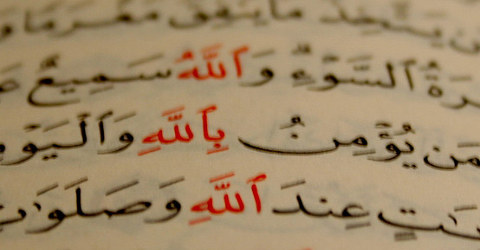 يَتَّخِذُ مَا يُنفِقُ مَغْرَمًا وَ
رَةُ ٱلسَّوْءِ وَٱللَّهُ سَمِيعٌ
مَن يُؤْمِنُ بِٱللَّهِ وَٱلْيَوْ
تٍ عِندَ ٱللَّهِ وَصَلَوَٰتِ